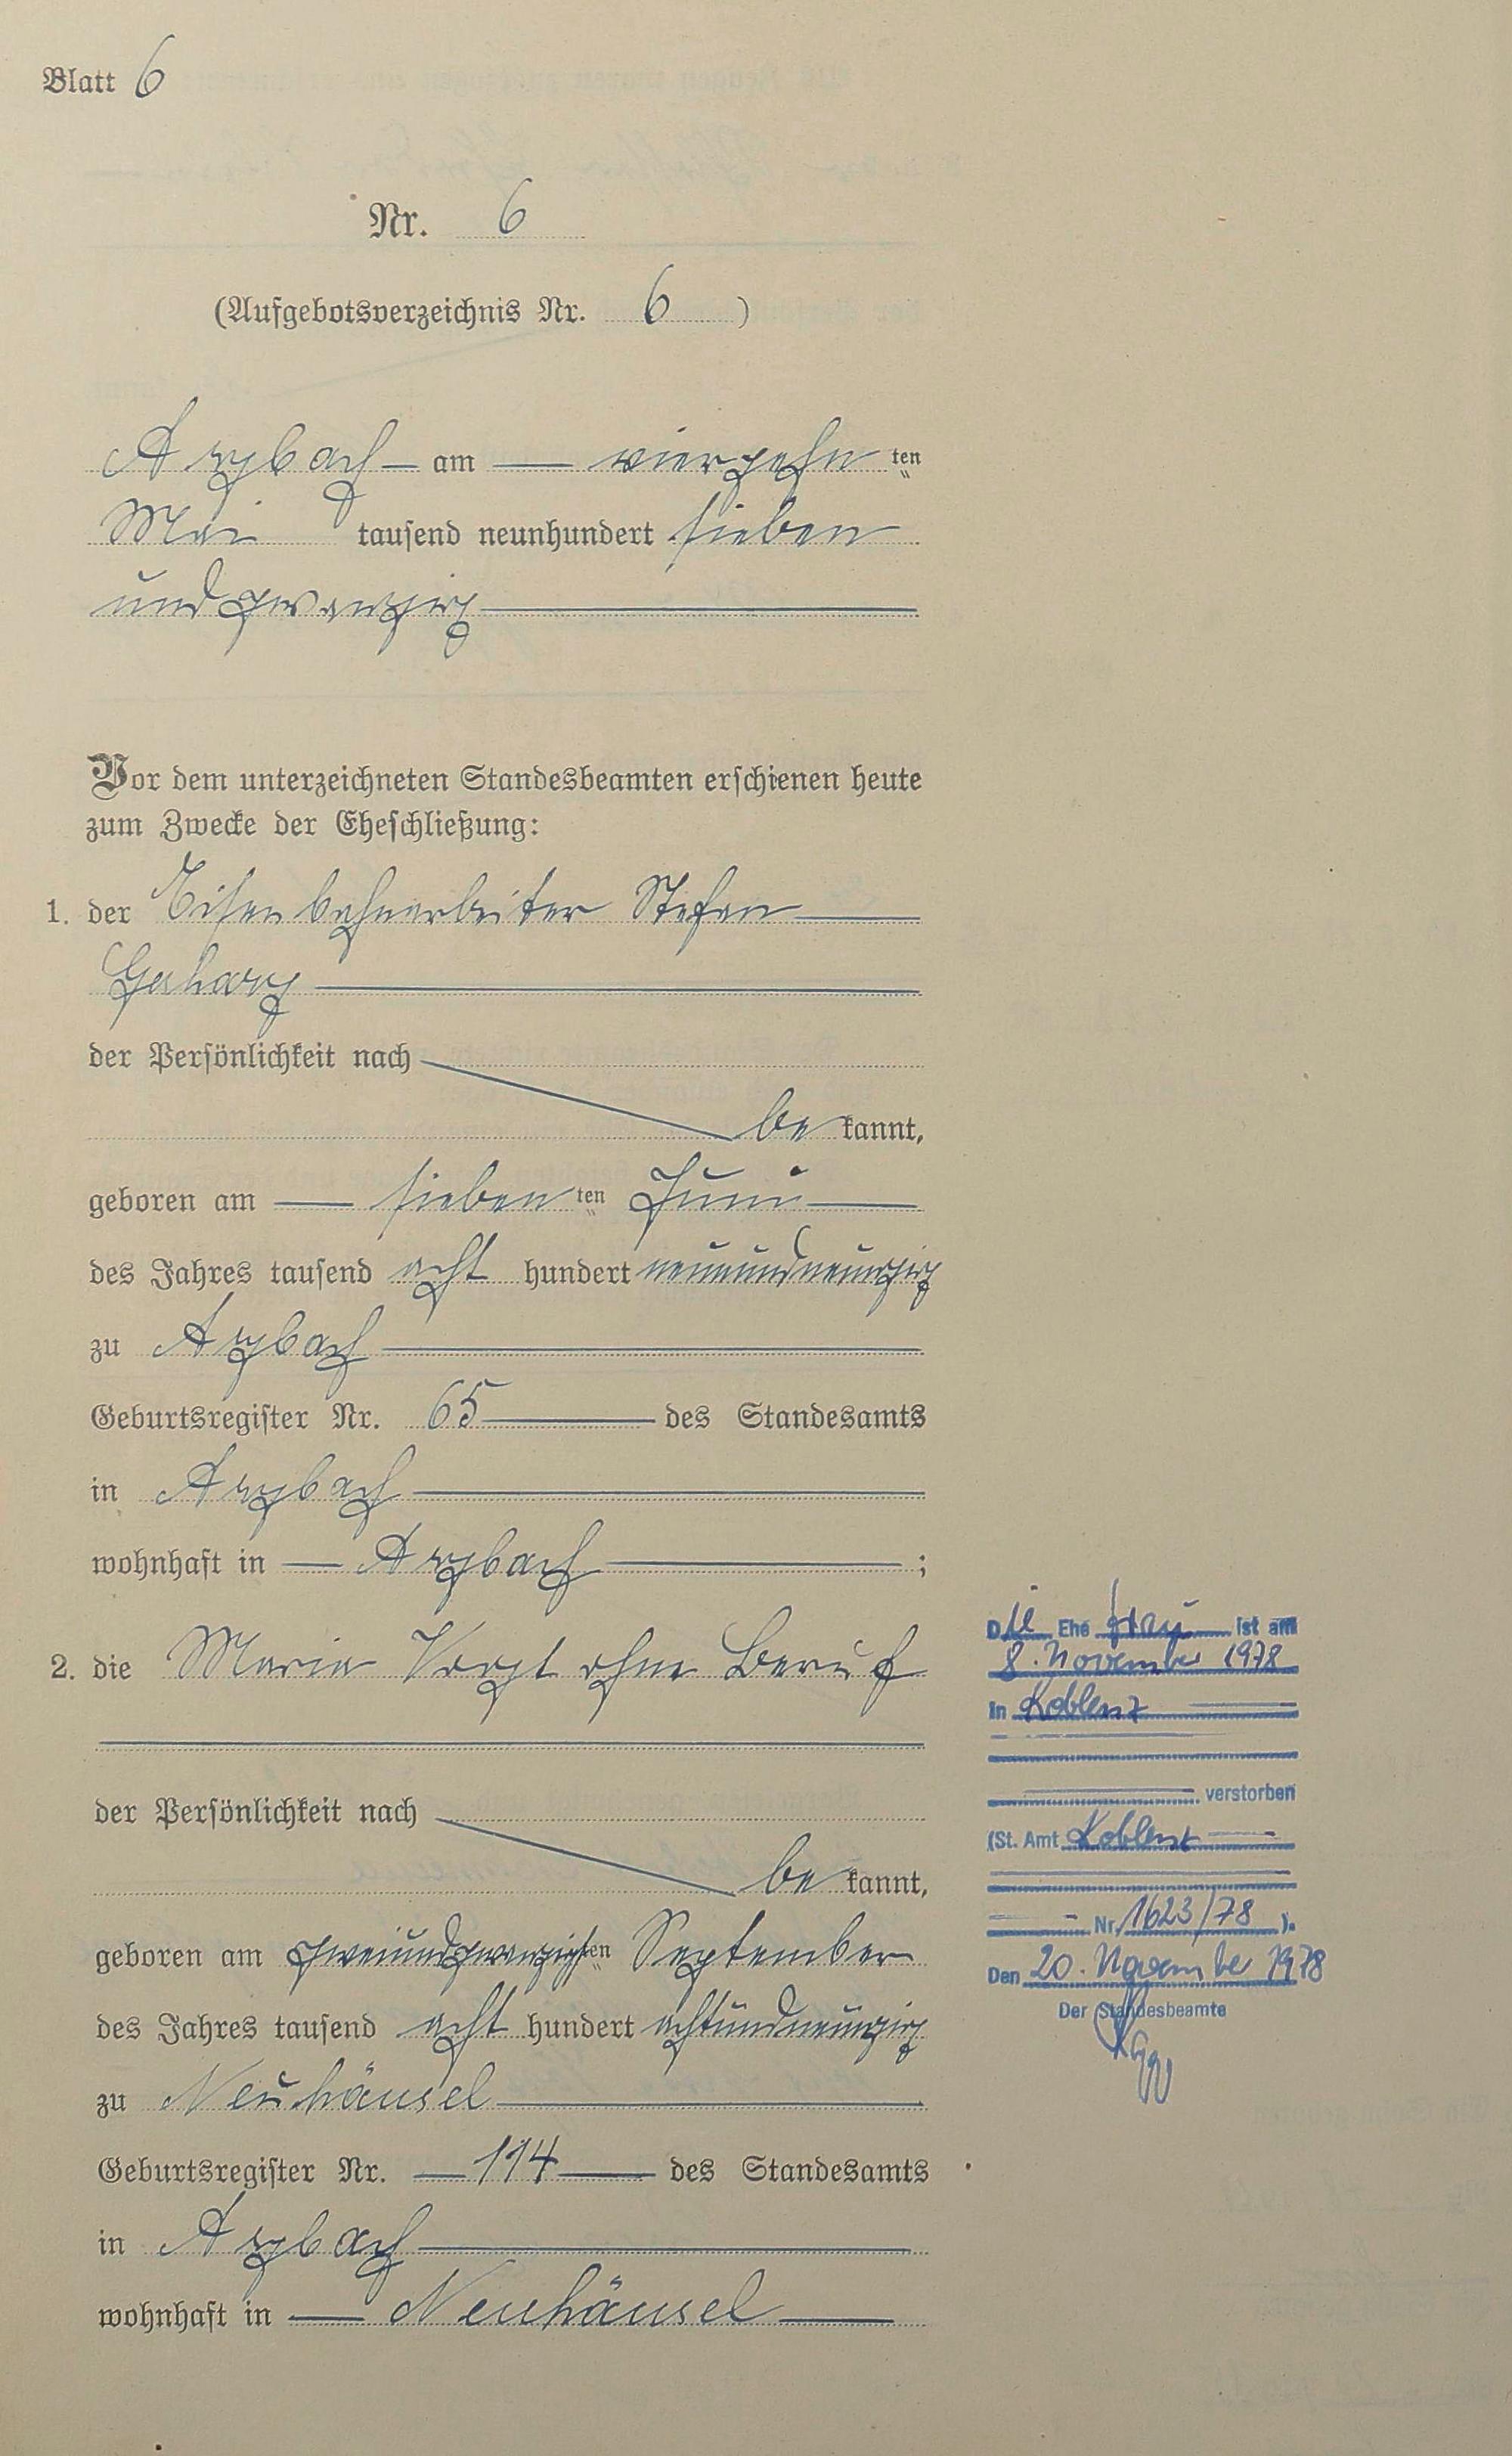 Blatt 6
Nr. 6
(Aufgebotsverzeichnis Nr. 6 )
Arzbach am vierzehn ten
Mai tausend neunhundert sieben
und zwanzig
Vor dem unterzeichneten Standesbeamten erschienen heute
zum Zwecke der Eheschließung:
1. der Eisenbahnarbeiter Stefan
Gerharz
der Persönlichkeit nach
be kannt,
geboren am sieben ten Juni
des Jahres tausend acht hundert neunundneunzig
zu Arzbach
Geburtsregister Nr. 65 des Standesamts
in Arzbach
wohnhaft in Arzbach ;
2. die Maria Vogt ohne Beruf
der Persönlichkeit nach
be kannt,
geboren am zweiundzwanzigsten September
des Jahres tausend acht hundert achtundneunzig
zu Neuhäusel
Geburtsregister Nr. 114 des Standesamts
in Arzbach
wohnhaft in Neuhäusel
Die Ehefrau ist am
8. November 1978
in Koblenz
verstorben
(St. Amt Koblenz
Nr. 1623/78 ).
Den 20. November 1978
Der Standesbeamte